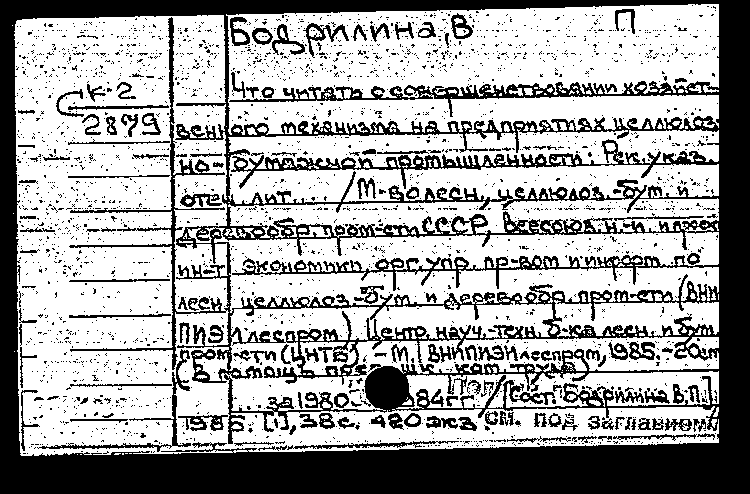 Бодрилина, В П
К-2
2879
Что читать о совершенствовании хозяйст-
венного механизма на предприятиях целлюлоз-
но-бумажной промышленности: Рек. указ.
отеч. лит... / М-во лесн., целлюлоз.-бум. и
деревообр. пром-сти СССР, Всесоюз. н.-и. и проек
ин-т экономики, орг. упр. пр-вом и информ. по
лесн., целлюлоз.-бум. и деревообр. пром-сти (ВНИ
ПИЭИлеспром) Центр. науч.-техн. б-ка лесн. и бум.
пром-сти (ЦНТБ). - М.: ВНИПИЭИлеспром, 1985. - 20см
(В помощь кат. труда)
... за 1980 84гг. / [Сост. Бодрилина В.П.]
1985. [1], 38 с. 420 экз. СМ. под заглавием